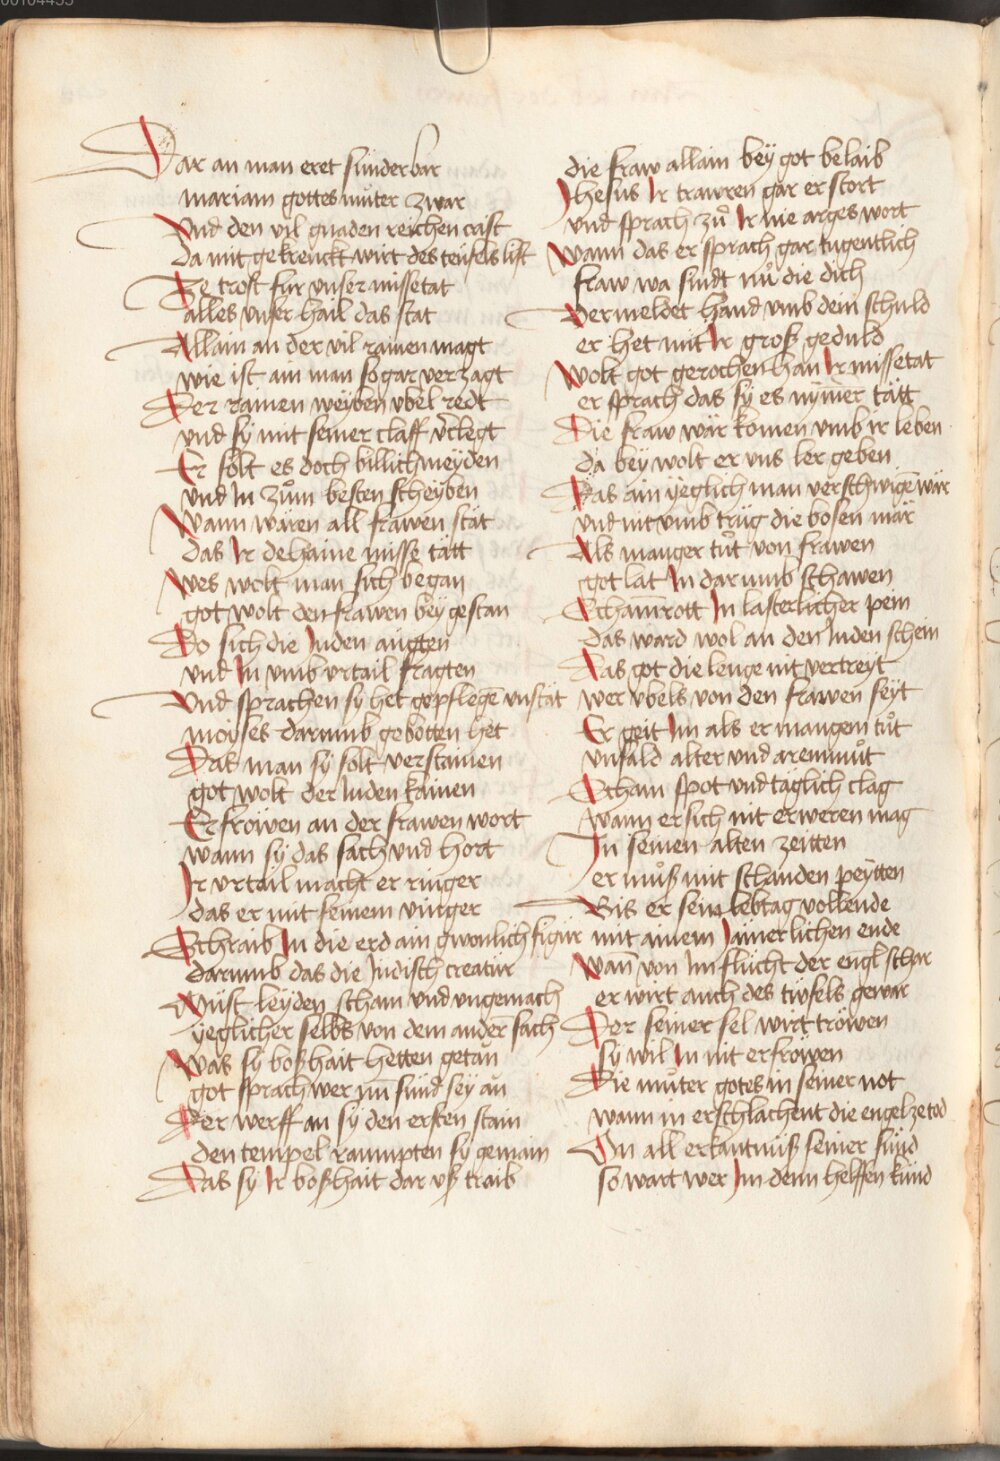 00104455
Dar an man eret sunderbar
mariam gottes můter zwar
Vnd den vil gnaden reichen crist
da mit gekrenckt wirt des teufels list
Ze trost fur vnser missetat
alles vnser hail das stat
Allain an der vil rainen magt
wie ist ain man so gar verzagt
Der rainen weyben vbel redt
vnd sy mit seiner claff verlegt
Er solt es doch billich meyden
vnd In zům besten scheyben
Wann wären all frawen stät
das Ir dehaine misse tätt
Wes wolt man sich began
got wolt den frawen bey gestan
Do sich die Iuden augten
vnd In vmb vrtail fragten
Vnd sprachen sy het gepflegē vnstät
moyses darumb gebotten het
Das man sy solt verstainen
got wolt der Iuden kainen
Erfröwen an der frawen wort
wann sy das sach vnd hort
Ir vrtail macht er ringer
das er mit seinem vinger
Schraib In die erd ain gwonlich figur
darumb das die Iudisch creatur
Müst leyden scham vnd vngemach
yeglicher selbs von dem andern sach
Was sy boßhait hetten getän
got sprach wer nŭ sünd sey än
Der werff an sy den ersten stain
den tempel raumpten sy gemain
Das sy Ir boßhait dar vß traib
die fraw allain bey got belaib
Ihesus Ir trawren gar erstort
vnd sprach zů Ir nie arges wort
Wann das er sprach gar tugentlich
fraw wa sindt nů die dich
Vermeldet hand vmb dein schuld
er het mit Ir groß geduld
Wolt got gerochen han Ir missetat
er sprach das sy es nym̄er tätt
Die fraw wär komen vmb ir leben
da bey wolt er vns ler geben
Das ain yeglich man verschwigē wär
vnd nit vmb trüg die bosen mär
Als manger tůt von frawen
got lat In darumb schawen
Scham̄rott In lasterlicher pein
das ward wol an den Iuden schein
Das got die lenge nit vertreyt
wer vbels von den frawen seyt
Er geit Im als er mangem tůt
vnfald alter vnd aremmůt
Scham spot vnd täglich clag
wann er sich nit erweren mag
In seinen alten zeitten
er můß mit schanden peytten
Bis er sein lebtag vollende
mit ainem Iämerlichen ende
Wañ von Im flücht der engl schar
er wirt auch des tiufels gewar
Der seiner sel wirt tröwen
sy wil In nit erfröwen
Die můter gotes in seiner not
wann in erschlachent die engel ze tod
On all erkantnüß seiner sünd
so wart wer Im denn helffen künd